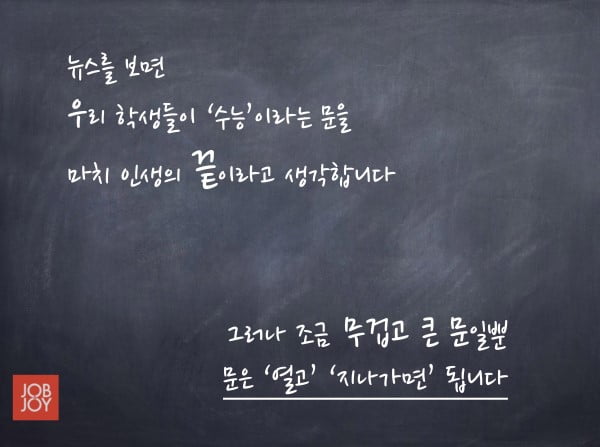 뉴스를 보면
우리 학생들이 ‘수능’이라는 문을
마치 인생의 끝이라고 생각합니다
그러나 조금 무겁고 큰 문일뿐
문은 ‘열고’ ‘지나가면’ 됩니다
JOB
JOY